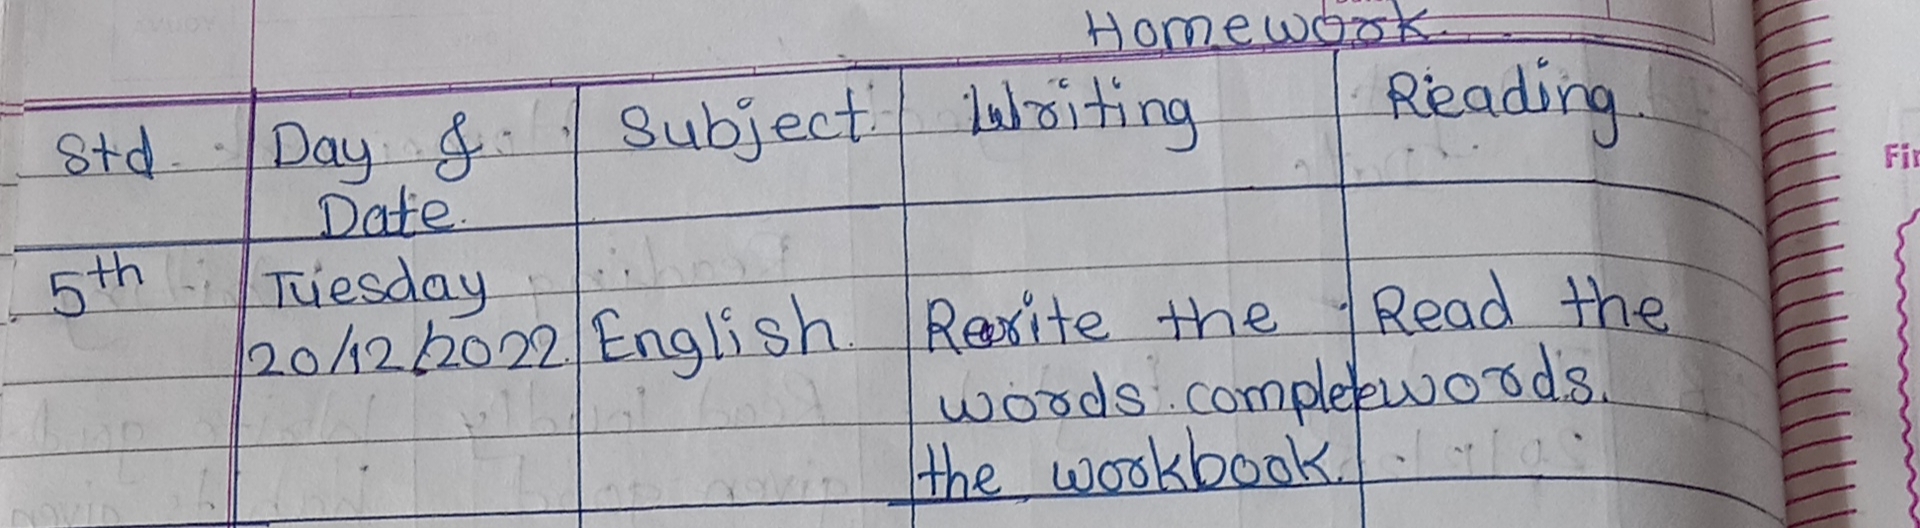 Homework.
Std. Day & Date. Subject Writing Reading.
5th Tuesday 20/12/2022. English. Rewrite the words. complete the workbook. Read the words.
Fir